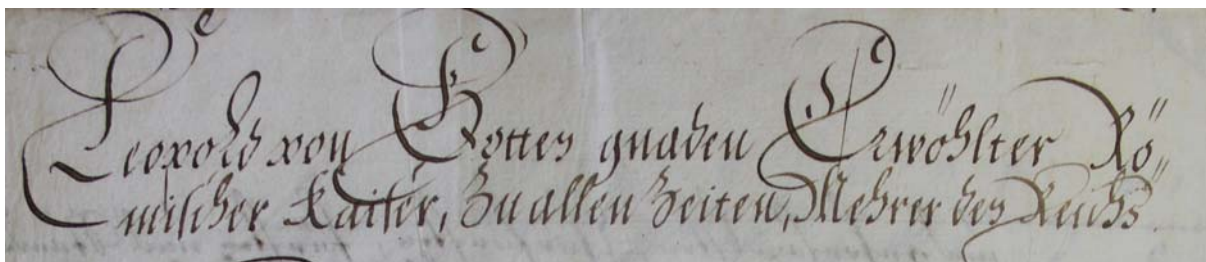 Leopold von Gottes gnaden Erwöhlter Rö„
mischer Kaiser, Zu allen Zeiten, Mehrer des Reichs.